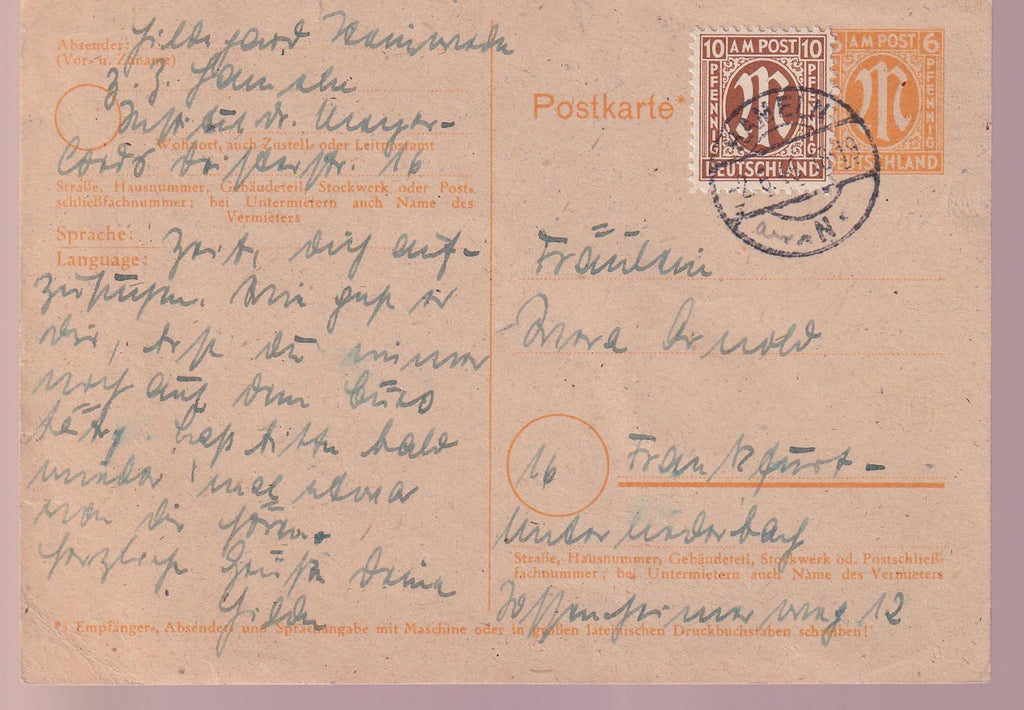 Absender: Hildegard
(Vor- u. Zuname)
z. Z. Hameln
Institut Dr. Meyer-
Wohnort, auch Zustell- oder Leitpostamt
Cords Deisterstr. 16
Straße, Hausnummer, Gebäudeteil, Stockwerk oder Post-
schließfachnummer; bei Untermietern auch Name des
Vermieters
Sprache:
Language:
Zeit, dich auf-
zusuchen. Wie geht es
dir, bist du immer
noch auf dem Büro
tätig. Laß bitte bald
wieder mal etwas
von dir hören.
Herzliche Grüße Deine
Hilde
10 AM POST 10
PFENNIG PFENNIG
DEUTSCHLAND
AM POST 6
PFENNIG
DEUTSCHLAND
HAMELN
Postkarte*
Fräulein
Wera Arnold
16 Frankfurt-
Unterliederbach
Straße, Hausnummer, Gebäudeteil, Stockwerk od. Postschließ-
fachnummer; bei Untermietern auch Name des Vermieters
weg 12
*) Empfänger-, Absender- und Sprachangabe mit Maschine oder in großen lateinischen Druckbuchstaben schreiben!